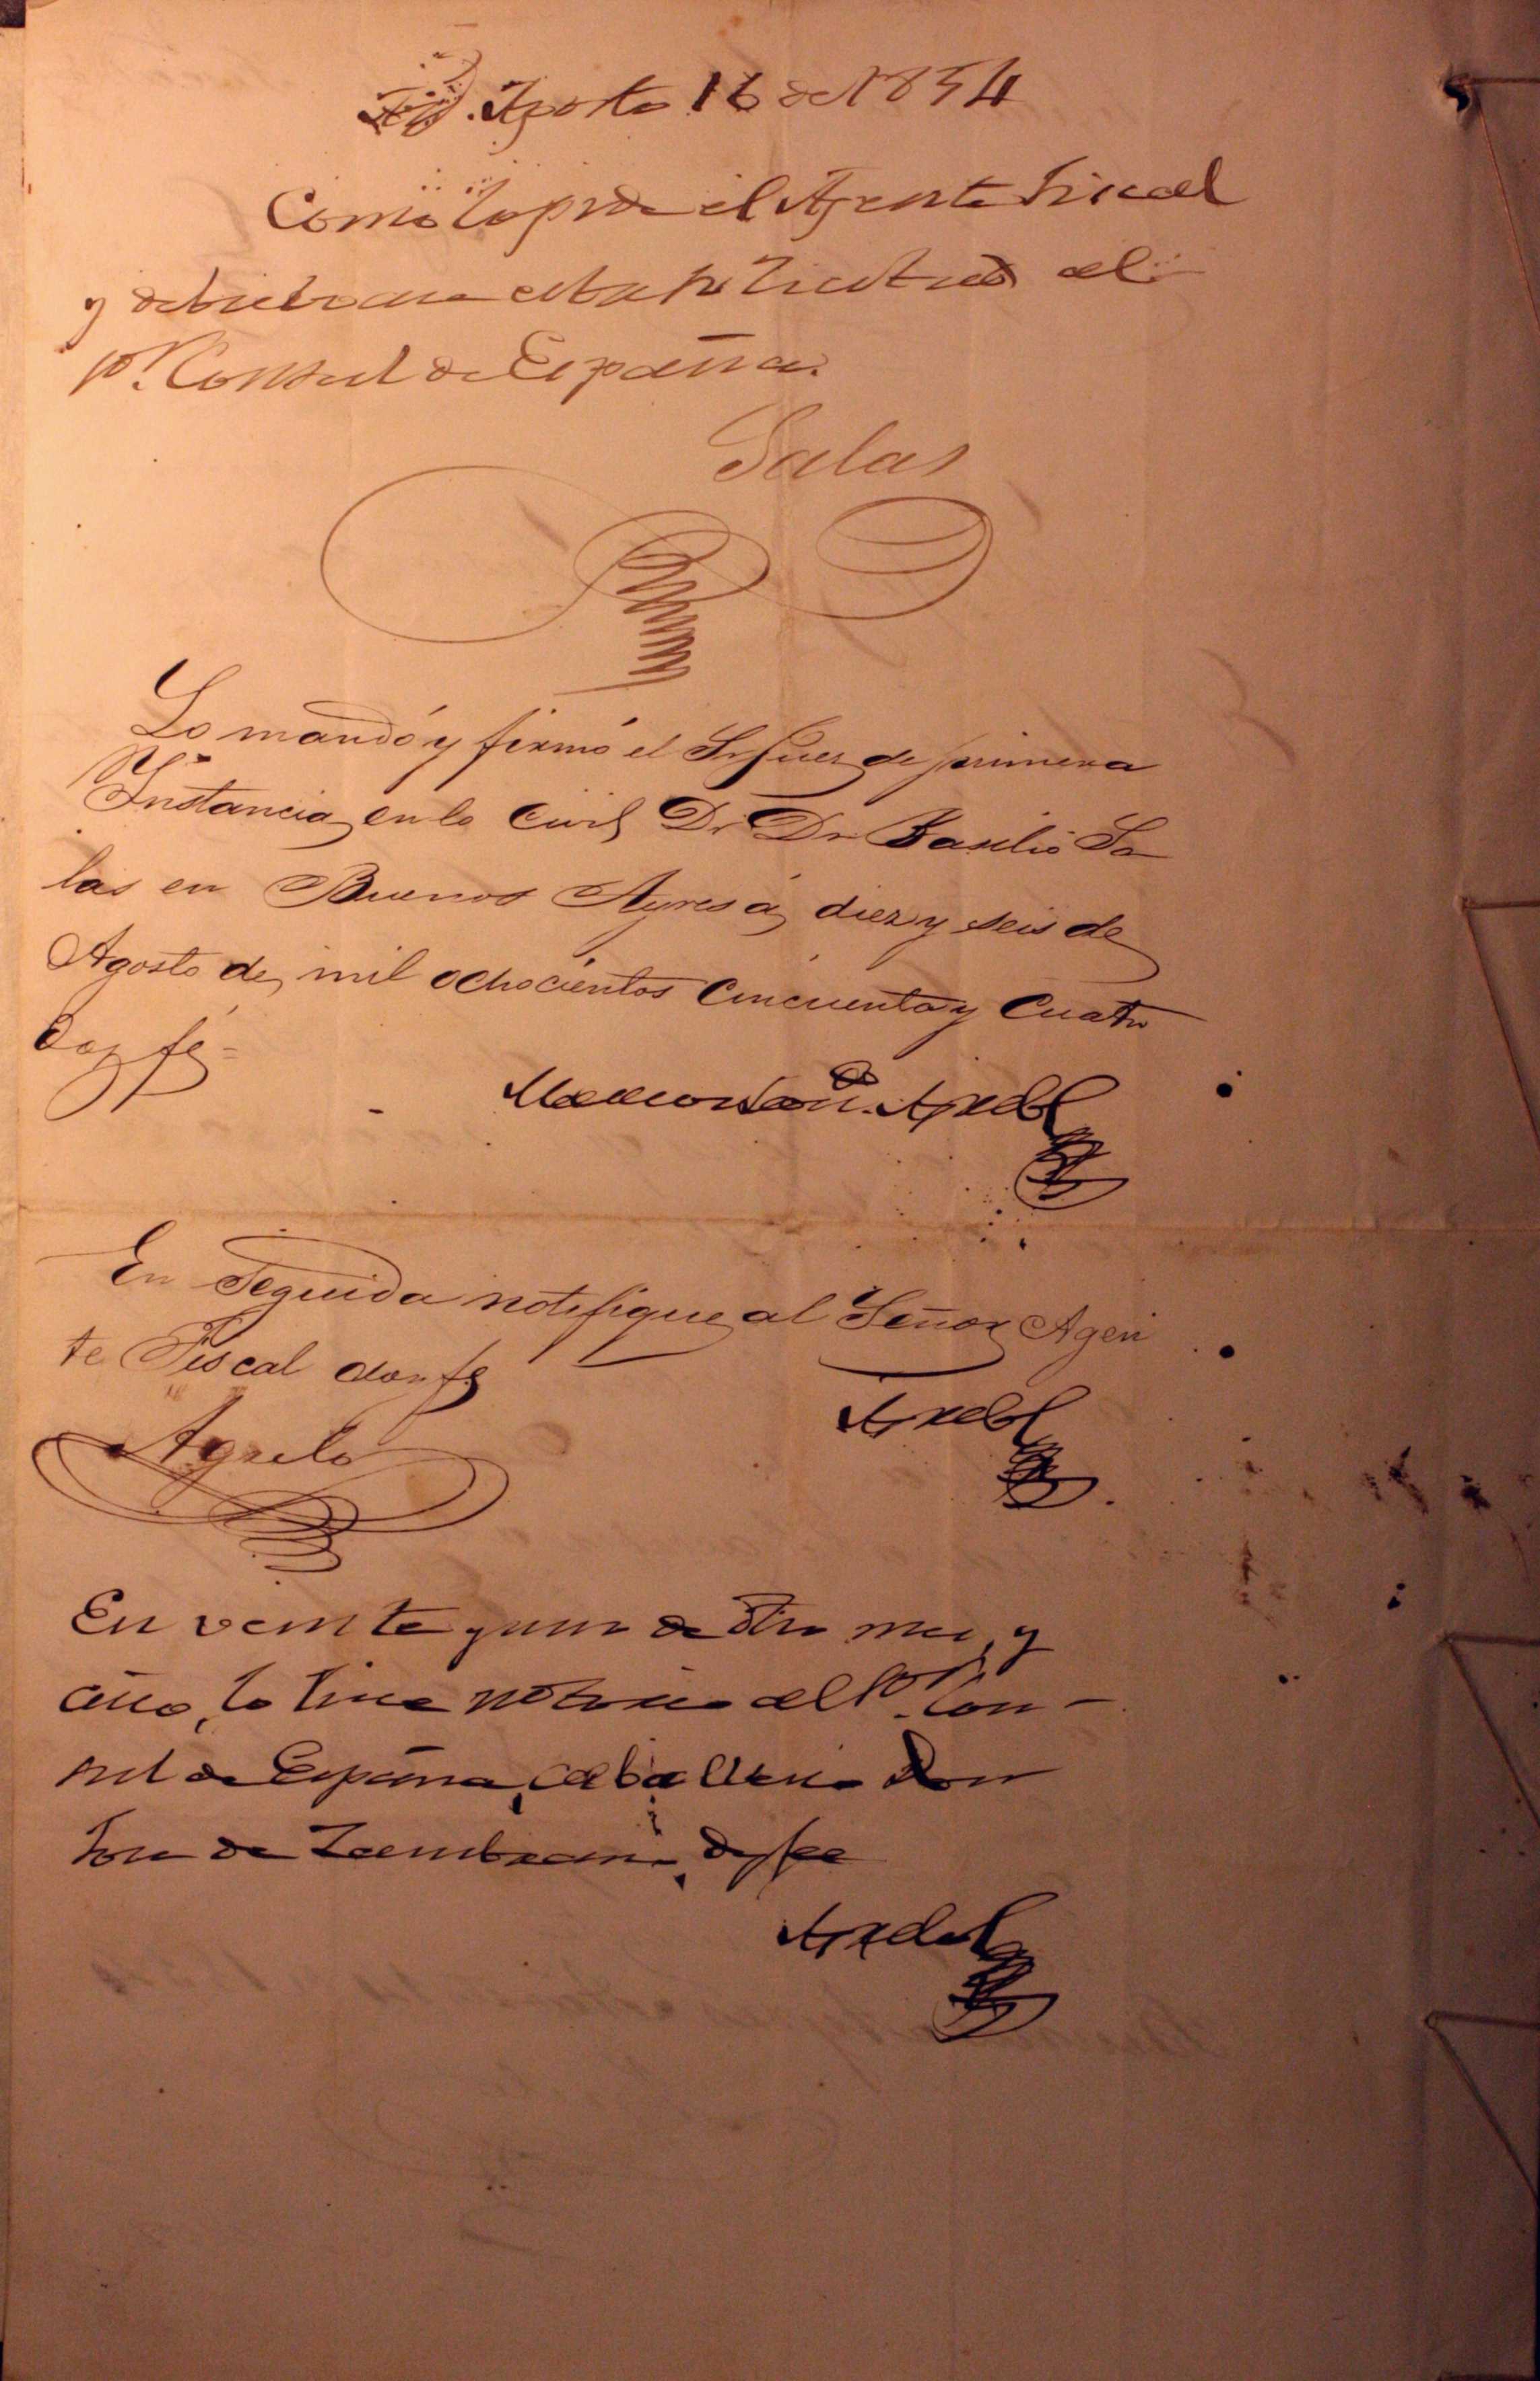 Agosto 16 de 1854
Como lo pide el Agente Fiscal
y al
Sor. Consul de España.
Salas
Lo mandó y firmó el Sr Juez de primera
Instancia en lo Civil Dr Dn Basilio Sa
las en Buenos Ayres á diez y seis de
Agosto de mil ochocientos Cincuenta y Cuatro
Doy fé=
En Seguida notifique al Señor Agen
te Fiscal doy fe
Agrelo
En veinte y uno de dho mes, y
año, lo hice notorio al Sor. Con-
sul de España, caballero Don
José de Zambrano, doy fee